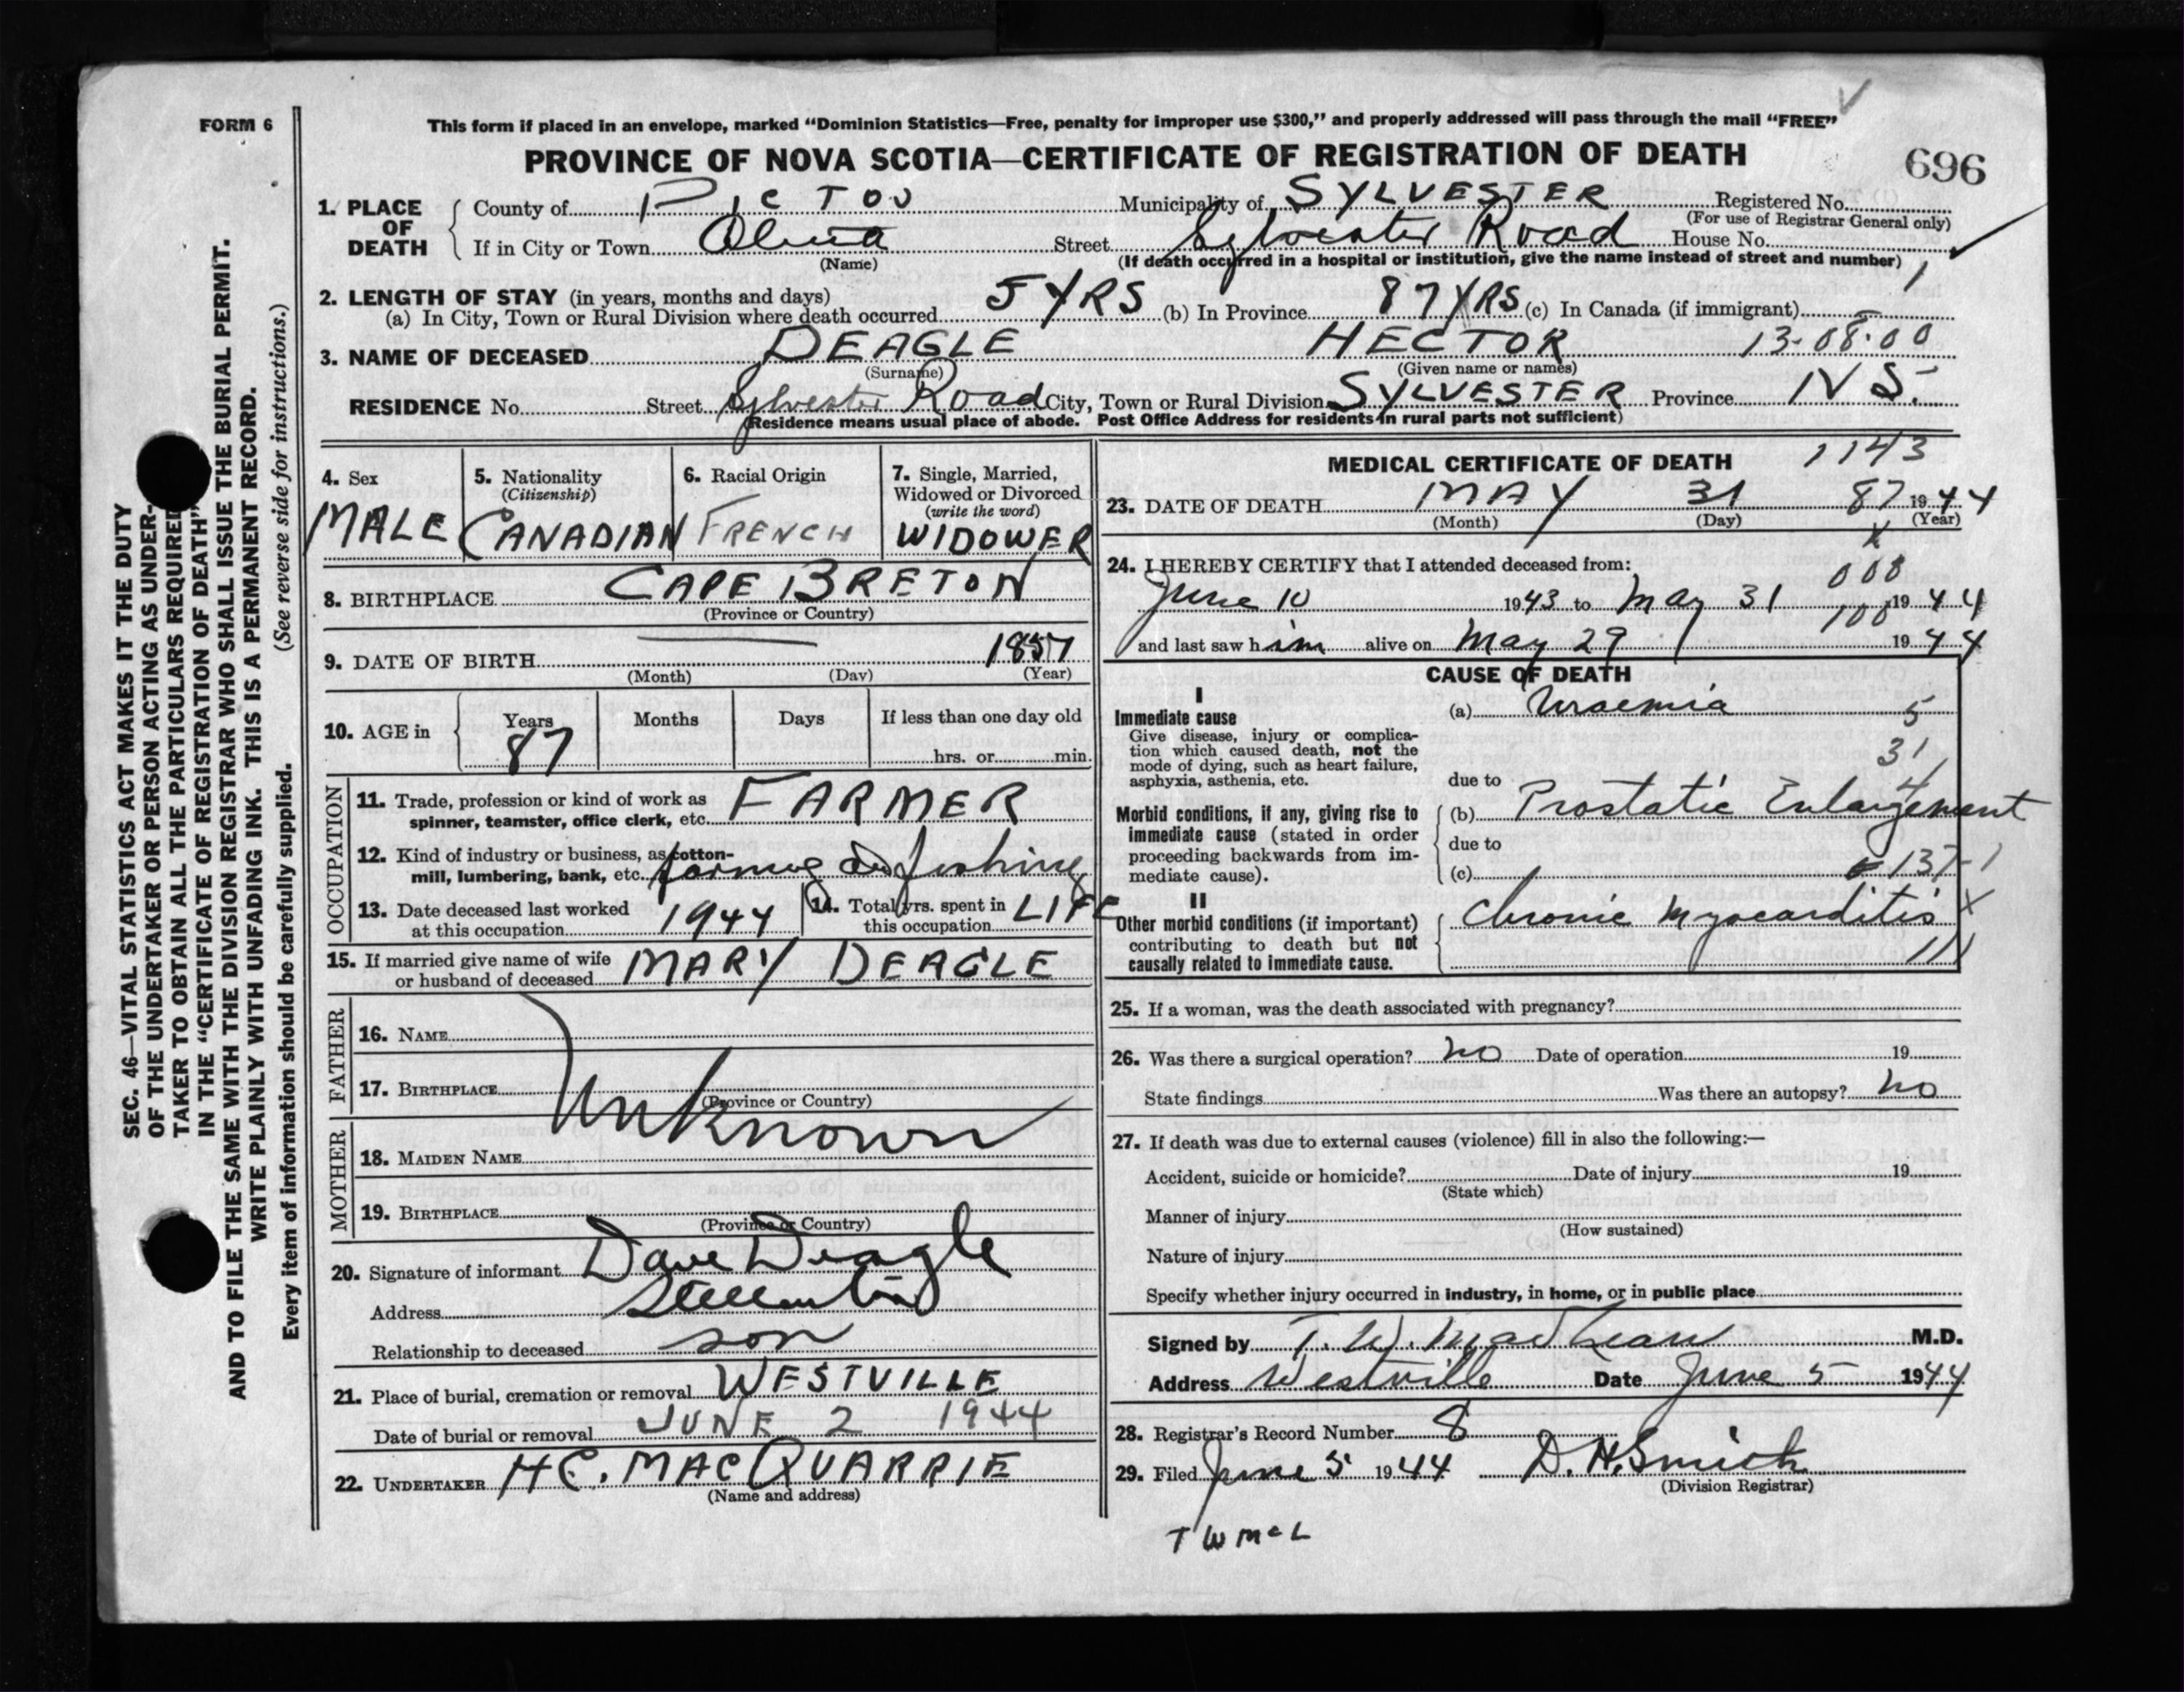 FORM 6
This form if placed in an envelope, marked "Dominion Statistics—Free, penalty for improper use $300," and properly addressed will pass through the mail "FREE"
PROVINCE OF NOVA SCOTIA—CERTIFICATE OF REGISTRATION OF DEATH
696
1. PLACE OF DEATH
County of PICTOU Municipality of SYLVESTER Registered No.
(For use of Registrar General only)
If in City or Town Street Sylvester Road House No.
(Name) (If death occurred in a hospital or institution, give the name instead of street and number)
2. LENGTH OF STAY (in years, months and days)
(a) In City, Town or Rural Division where death occurred 5 YRS (b) In Province 87 YRS (c) In Canada (if immigrant)
3. NAME OF DECEASED DEAGLE HECTOR 13-08-00
(Surname) (Given name or names)
RESIDENCE No. Street Sylvester Road City, Town or Rural Division SYLVESTER Province N S.
(Residence means usual place of abode. Post Office Address for residents in rural parts not sufficient)
4. Sex
MALE
5. Nationality
(Citizenship)
CANADIAN
6. Racial Origin
FRENCH
7. Single, Married,
Widowed or Divorced
(write the word)
WIDOWER
8. BIRTHPLACE CAPE BRETON
(Province or Country)
9. DATE OF BIRTH 1857
(Month) (Day) (Year)
10. AGE in
Years Months Days If less than one day old
87 hrs. or min.
OCCUPATION
11. Trade, profession or kind of work as
spinner, teamster, office clerk, etc. FARMER
12. Kind of industry or business, as cotton-
mill, lumbering, bank, etc. farming and fishing
13. Date deceased last worked
at this occupation 1944
14. Total yrs. spent in
this occupation LIFE
15. If married give name of wife
or husband of deceased MARY DEAGLE
FATHER
16. NAME
17. BIRTHPLACE
(Province or Country)
Unknown
MOTHER
18. MAIDEN NAME
19. BIRTHPLACE
(Province or Country)
20. Signature of informant Dave Deagle
Address Stellarton
Relationship to deceased son
21. Place of burial, cremation or removal WESTVILLE
Date of burial or removal JUNE 2 1944
22. UNDERTAKER H.C. MACQUARRIE
(Name and address)
MEDICAL CERTIFICATE OF DEATH 1143
23. DATE OF DEATH MAY 31 87 1944
(Month) (Day) (Year)
X
24. I HEREBY CERTIFY that I attended deceased from:
008
June 10 1943 to May 31 1944
100
and last saw him alive on May 29 1944
CAUSE OF DEATH
I
Immediate cause
Give disease, injury or complica-
tion which caused death, not the
mode of dying, such as heart failure,
asphyxia, asthenia, etc.
(a) Uraemia 5
31
4
due to
Morbid conditions, if any, giving rise to
immediate cause (stated in order
proceeding backwards from im-
mediate cause).
(b) Prostatic Enlargement
due to
(c) 137-1
II
Other morbid conditions (if important)
contributing to death but not
causally related to immediate cause.
Chronic Myocarditis X
25. If a woman, was the death associated with pregnancy?
26. Was there a surgical operation? no Date of operation 19
State findings Was there an autopsy? no
27. If death was due to external causes (violence) fill in also the following:—
Accident, suicide or homicide? Date of injury 19
(State which)
Manner of injury
(How sustained)
Nature of injury
Specify whether injury occurred in industry, in home, or in public place
Signed by T. W. MacLean M.D.
Address Westville Date June 5 1944
28. Registrar's Record Number 8
29. Filed June 5 1944 D. H. Smith
(Division Registrar)
T W McL
SEC. 46—VITAL STATISTICS ACT MAKES IT THE DUTY
OF THE UNDERTAKER OR PERSON ACTING AS UNDER-
TAKER TO OBTAIN ALL THE PARTICULARS REQUIRED
IN THE "CERTIFICATE OF REGISTRATION OF DEATH"
AND TO FILE THE SAME WITH THE DIVISION REGISTRAR WHO SHALL ISSUE THE BURIAL PERMIT.
WRITE PLAINLY WITH UNFADING INK. THIS IS A PERMANENT RECORD.
Every item of information should be carefully supplied. (See reverse side for instructions.)